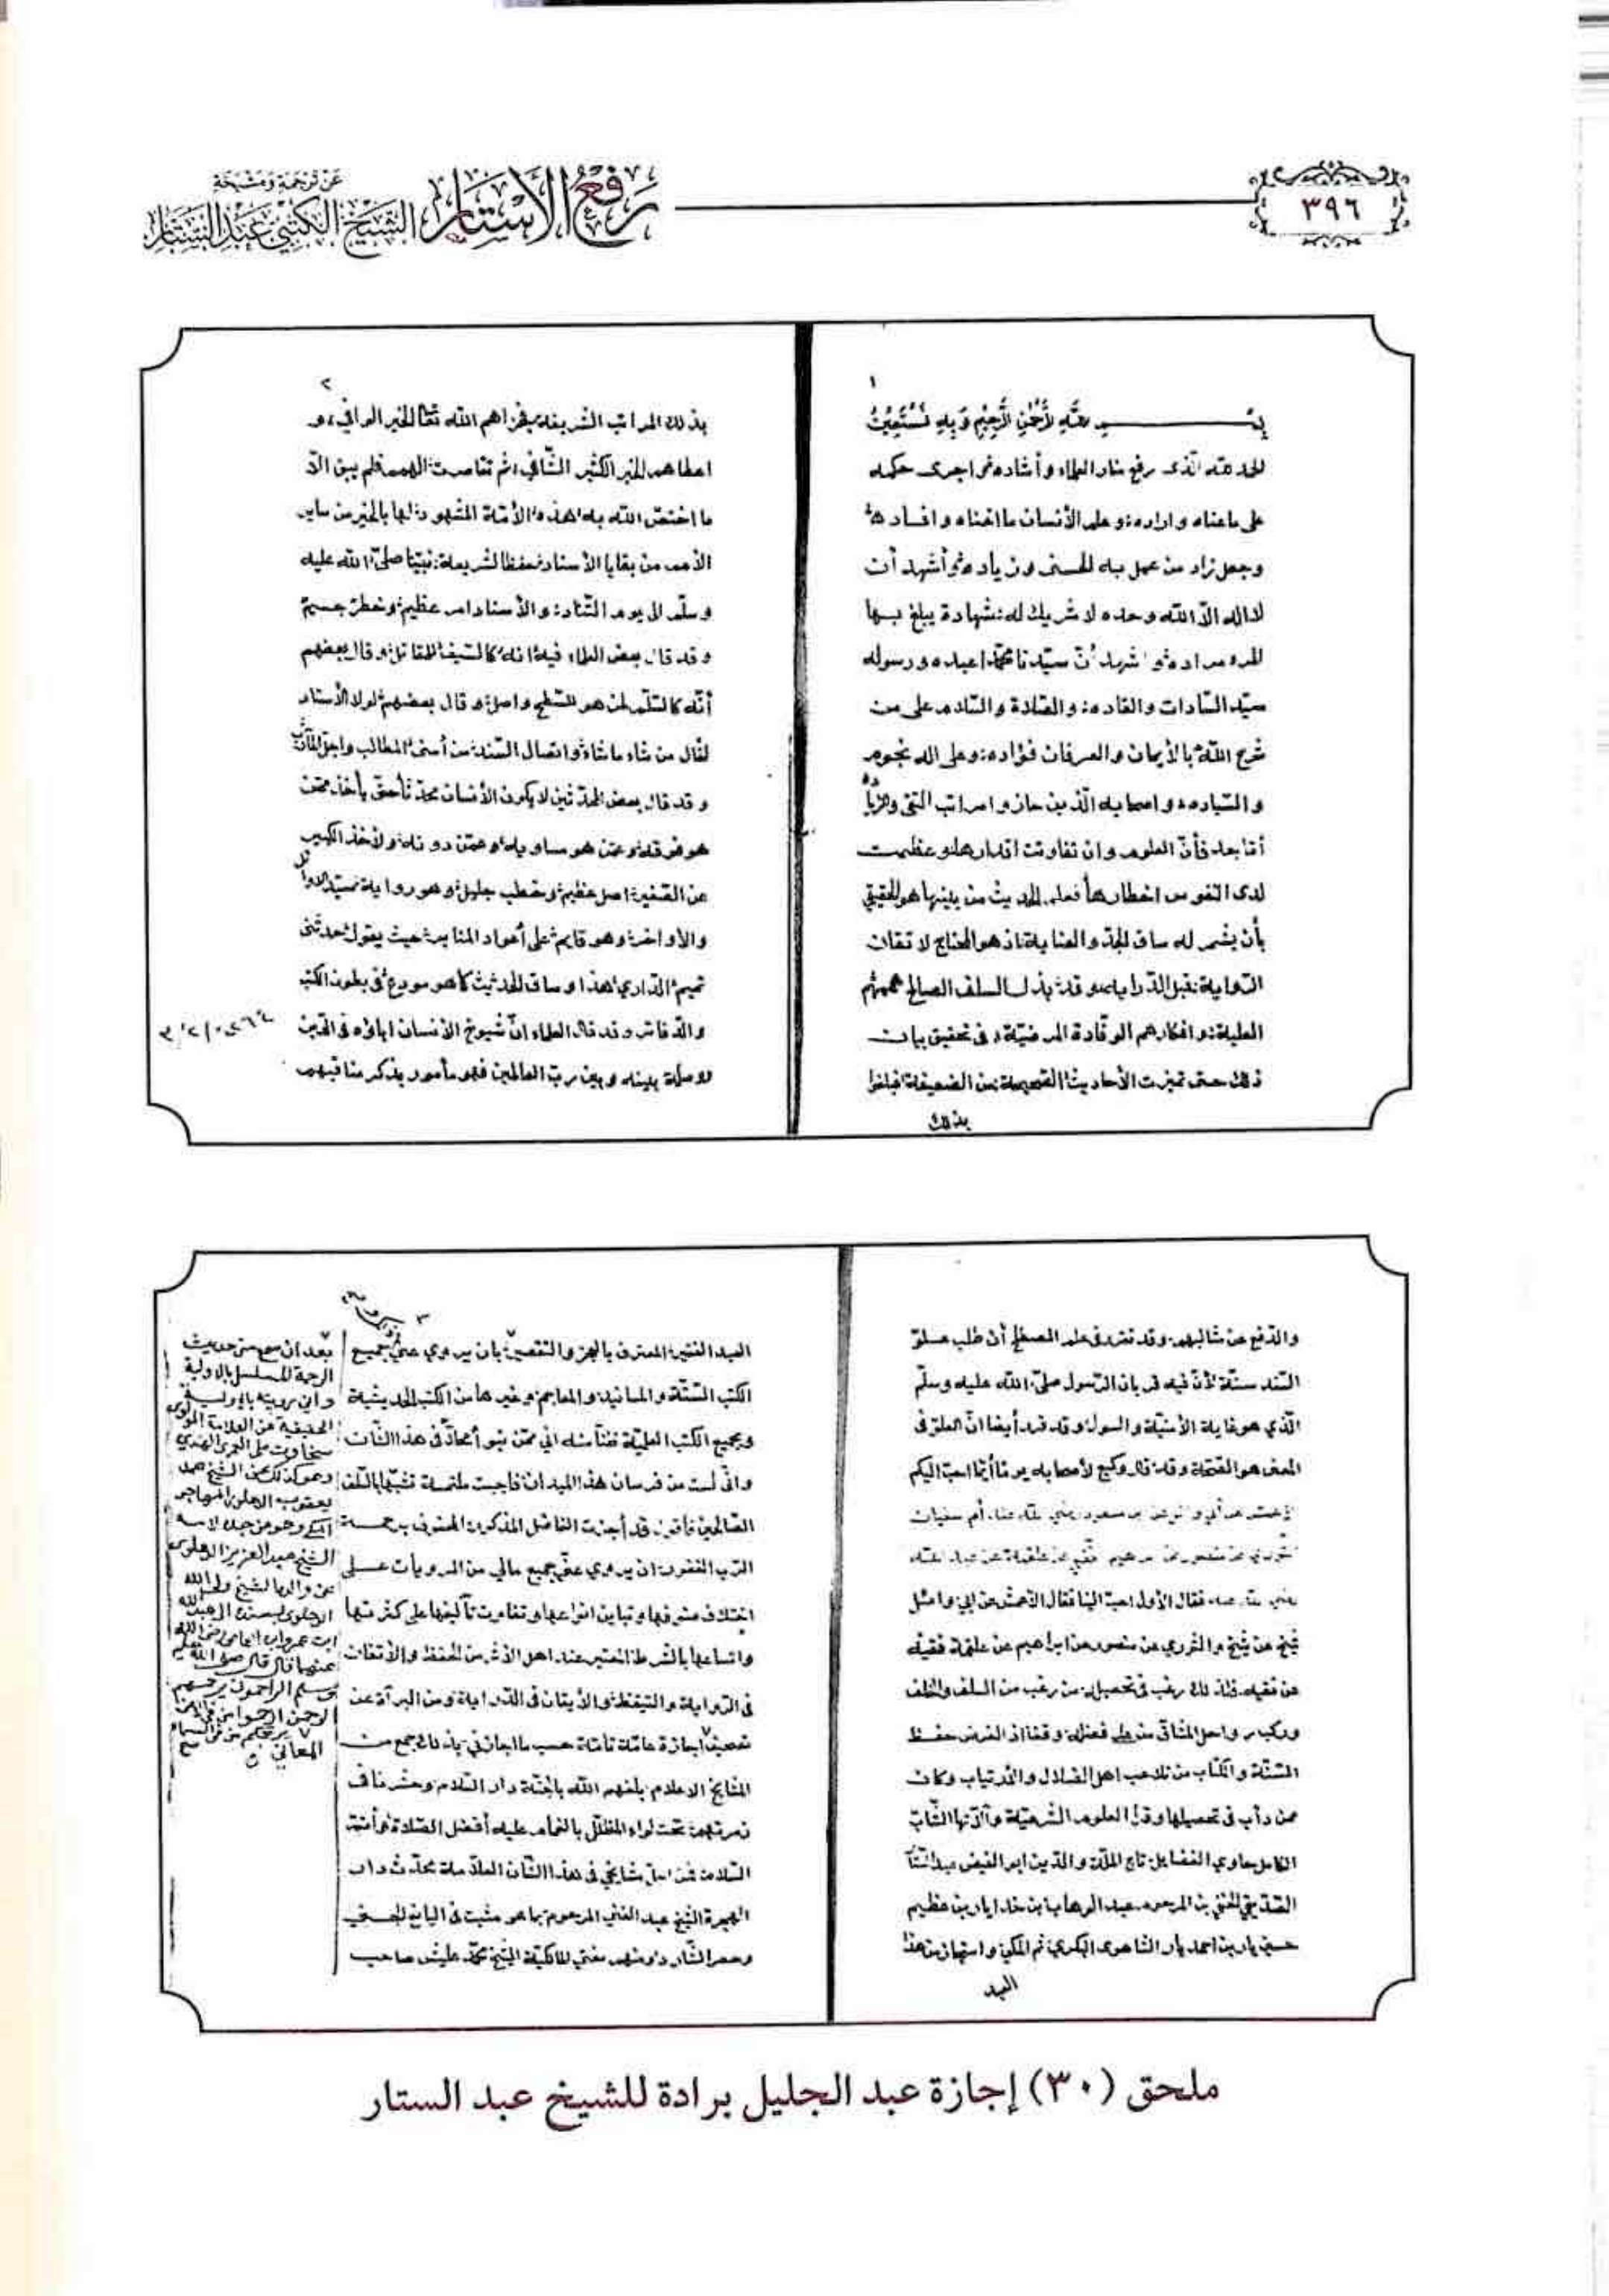 ٣٩٦
رفع الأستار
عن ترجمة ومشيخة
الشيخ الكتبي عبد الستار
١
بسم الله الرحمن الرحيم وبه نستعين
الحمد لله الذى رفع منار العلماء وأشاده وأجرى حكمه
على ما عناه واراده وعلم الأنسان ما اغناه وافاده
وجعل زاد من عمل به الحسنى وزياده وأشهد أن
لا اله الا الله وحده لا شريك له شهادة يبلغ بها
المرء مراده وأشهد أن سيدنا محمدا عبده ورسوله
سيد السادات والقاده والصلاة والسلام على من
شرح الله بالأيمان والعرفان فؤاده وعلى اله نجوم
والسياده واصحابه الذين حازوا مراتب التقى والزياده
أما بعد فأن العلوم وان تفاوتت اقدارها وعظمت
لدى النفوس اخطارها فعلم الحديث من بينها هو الحقيق
بأن يشمر له ساق الجد والعناية اذ هو المحتاج لاتقان
الرواية قبل الدراية وقد بذل السلف الصالح هممهم
العلية وافكارهم الوقادة المرضية فى تحقيق بيان
ذلك حتى تميزت الأحاديث الصحيحة من الضعيفة فبلغوا
بذلك
٢
بذلك المراتب الشريفة فجزاهم الله تعالى الخير الوافي و
اعطاهم الخير الكثير الشافي ثم تقاصرت الهمم فلم يبق الا
ما اختص الله به هذه الأمة المشهود لها بالخير من ساير
الأمم من بقايا الأسناد حفظا لشريعة نبينا صلى الله عليه
وسلم الى يوم التناد والأسناد امر عظيم وخطر جسيم
وقد قال بعض العلماء فيه انه كالسيف للمقاتل وقال بعضهم
أنه كالسلم لمن هو للسطح واصل وقال بعضهم لولا الأسناد
لقال من شاء ما شاء واتصال السند من أسنى المطالب واجل
وقد قال بعض المحدثين لا يكون الأنسان محدثا حتى يأخذ عمن
هو فوقه وعمن هو مساويه وعمن دونه ولأخذ الكبير
عن الصغير اصل عظيم وخطب جليل وهو رواية سيد الاوائل
والأواخر وهو قايم على أعواد المنابر حيث يقول حدثنى
تميم الداري هذا وساق الحديث كما هو مودع فى بطون الكتب
والدفاتر وقد قال العلماء ان شيوخ الأنسان اباؤه فى الدين
ووصلة بينه وبين رب العالمين فهو مأمور بذكر مناقبهم
والدفع عن مثالبهم وقد تقرر فى علم المصطلح أن طلب علو
السند سنة لأن فيه قربا من الرسول صلى الله عليه وسلم
الذي هو غاية الأمنية والسول وقد قرر أيضا ان العلو فى
المعنى هو الصحة وقد قال وكيع لأصحابه يوما أيما احب اليكم
فقال الأول احب الينا فقال الأعمش عن ابي وائل
شيخ عن شيخ والثوري عن منصور عن ابراهيم عن علقمة فقيه
عن فقيه فلذلك رغب فى تحصيله من رغب من السلف والخلف
السنة والكتاب من تلاعب اهل الضلال والارتياب وكان
ممن دأب فى تحصيلها وقرأ العلوم الشرعية وآلاتها الشاب
الكامل حاوي الفضايل تاج الملة والدين ابو الفيض عبد الستار
الصديقي الحنفي بن المرحوم عبد الوهاب بن خدايار بن عظيم
حسين يار بن احمد يار الشاهوى البكري ثم المكي واستجاز من هذا
العبد
٣
العبد الفقير المعترف بالعجز والتقصير بأن يروي عني جميع
الكتب الستة والمسانيد والمعاجم وغيرها من الكتب الحديثية
وبجميع الكتب العلية ظنا منه اني ممن تبوأ محلا فى هذا الشأن
وانى لست من فرسان هذا الميدان فاجبت ملتمسه تشبها بالسلف
الصالحين فأقول قد أجزت الفاضل المذكور المحفوف برحمة
الرب الغفور ان يروي عني جميع مالي من المرويات على
اختلاف صنوفها وتباين انواعها وتفاوت تآليفها على كثرتها
واتساعها بالشرط المعتبر عند اهل الأثر من الحفظ والأتقان
فى الرواية والتيقظ والأيقان فى الدراية ومن البرآة عن
تصحيف اجازة عامة تامة حسب ما اجازني بذلك جمع من
المشايخ الاعلام بلغهم الله بالجنة دار السلام وحشرنا فى
زمرتهم تحت لواء المظلل بالغمام عليه أفضل الصلاة وأتم
السلام فمن اجل مشايخي فى هذا الشأن العلامة محدث دار
الهجرة الشيخ عبد الغني المرحوم بما هو مثبت فى اليانع الجني
وحصر الشارد ومنهم مفتي المالكية الشيخ محمد عليش صاحب
بعد ان سمع منى حديث
الرحمة المسلسل بالاولية
يعقوب الدهلوي المهاجر
الشيخ عبد العزيز الدهلوى
عن والده الشيخ ولي الله
الدهلوى بسنده الى عبد الله
ابن عمرو ابن العاص رضى الله
عنهما قال قال صلى الله عليه
وسلم الراحمون يرحمهم
الرحمن ارحموا من فى الارض
يرحمكم من فى السماء
ملحق (٣٠) إجازة عبد الجليل برادة للشيخ عبد الستار